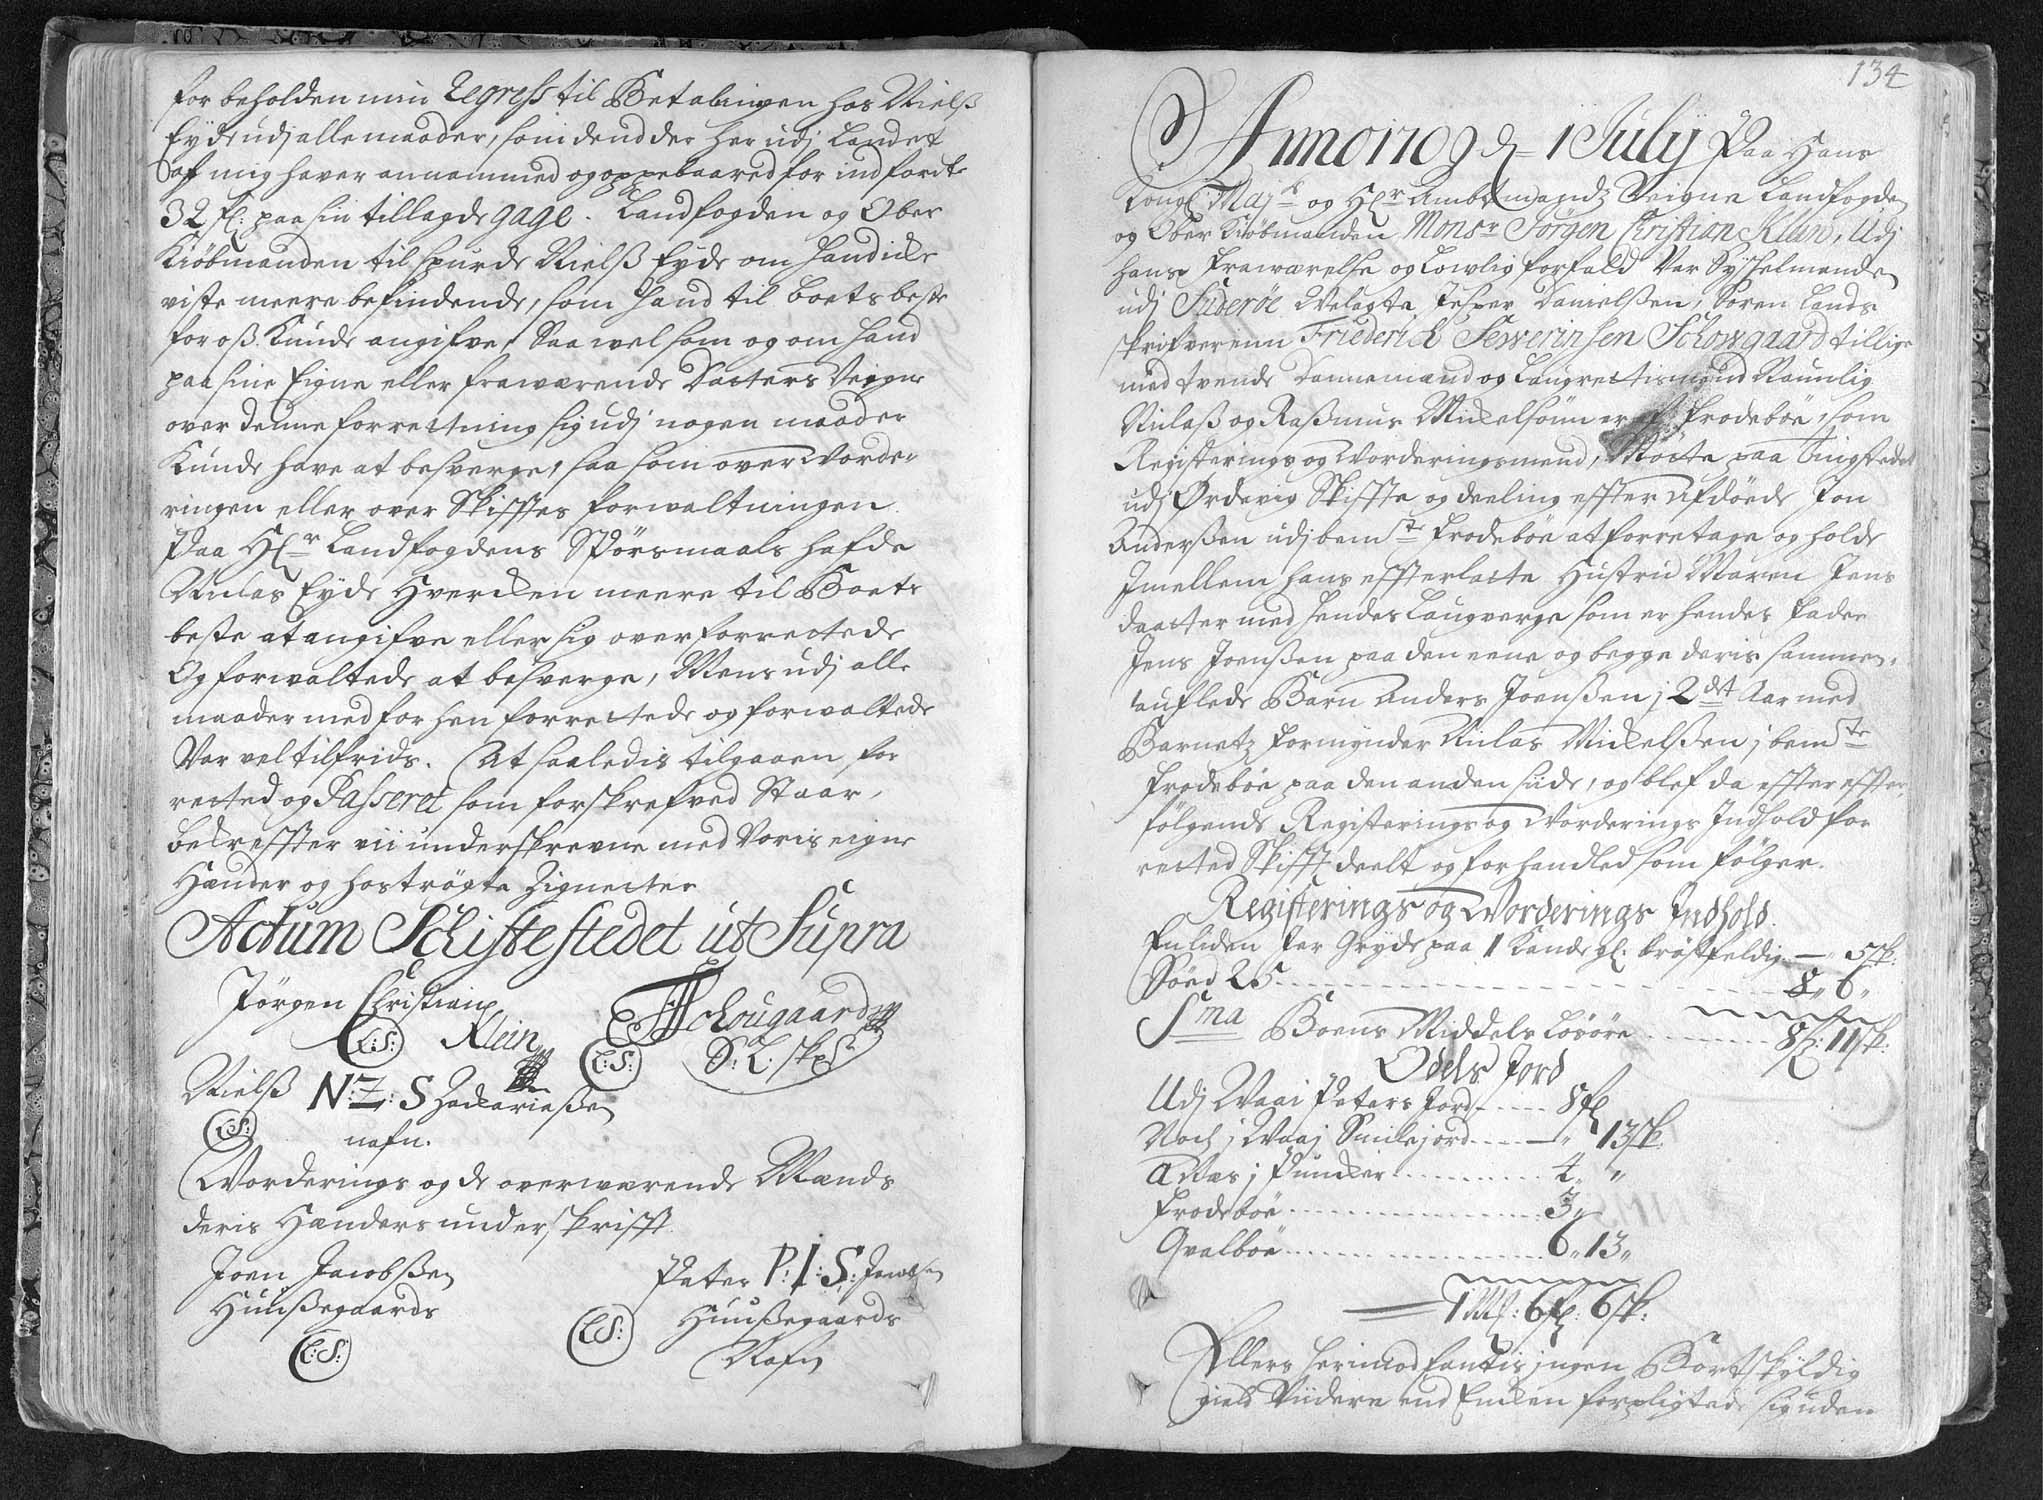 for beholden min Regress til Betalingen hos Nielß
Eyde udj alle maader, som dend der her udj Landet
af mig haver annammed og oppebaared for indførte
32 fl: paa sin tillagde gage. Landfogden og Ober
Kiöbmanden til spurde Nielß Eyde om hand icke
viste meere befindende, som hand til boets beste
for oß Kunde angifve, Saa vel som og om hand
paa sine Eigne eller fraværende Dotters Veigne
over denne forretning sig udj nogen maader
Kunde have at besverge, saa som over Vorde-
ringen eller over Skifftes forvaltningen.
Paa Hr Landfogdens Spörsmaals hafde
Niclas Eyde Hvercken meere til Boets
beste at angifve eller sig over forrettede
Og forvaltede at besverge, Mens udj alle
maader med forhen forrettede og forvaltede
Var vel tilfrids. At saaledis tilgaaen for
retted og Passeret som forskrefved Staar,
bekreffter vii underskrevne med Voris eigne
Hænder og hoströgte Zigneter
Actum Schiftestedet ut Supra
Jörgen Christian
Klein
L:S:
FSchougaard
S: L: skr
L:S:
Nielß N: Z: S Zachariaßen
L:S: nafn.
Vorderings og de overværende Mænds
deris Hænders underskrifft
Joen Jacobßen Peter P: I: S: Jacobßen
Huußegaards Huußegaards
L:S: L:S: Nafn
134
Anno 1709 d= 1 July Paa Hans
Kongl Mayts og Hr Ambtmandz Veigne Landfogden
og Ober Kiöbmanden Monsr Jörgen Christian Klein, Udj
hans fraværelse og Lovlig forfald Var Sysselmanden
udj Suderöe Velagte Jesper Danielßen, Soren Lands
skrifveren Friederich Sewerinsen Schougaard tillige
med tvende Dannemænd og Laugrettismænd Naunlig
Niclaß og Raßmus Mickelsönner af Frodeböe, som
Registerings og Vorderingsmænd, Mötte paa Tingstedet
udj Ördevig Skiffte og deeling effter Afdöede Jon
Anderßen udj bemte Frodeböe at forretage og holde
Imellem hans effterlatte Hustru Maren Jens
daatter med hendes Laugverge som er hendes Fader
Jens Joenßen paa den eene og begge deris sammen-
auflede Barn Anders Joenßen j 2det Aar med
Barnetz Formynder Niclas Mickelßen j bemte
Frodeböe paa den anden siide, og blef da effter effter
fölgende Registerings og Vorderings Indhold for
retted Skifft deelt og forhandled som fölger.
Registerings og Vorderings Indhold.
En liden Jer Gryde paa 1 Kande gl: bröstfeldig — „ 5 sk:
Söed 25 8„ 6„
Sma Boens Middels Lösöre 8 fl: 11 sk:
Odels Jord
Udj Waai Peters Jord 8 fl
Noch j Waaj Smilejord — „ 13 sk:
Frodeböe 3„
Qvalböe 6„ 13„
1 Ml: 6 fl: 6 sk:
Ellers herimod fantis ingen Bort skyldig
gield Viidere end Encken forpligtede sig uden